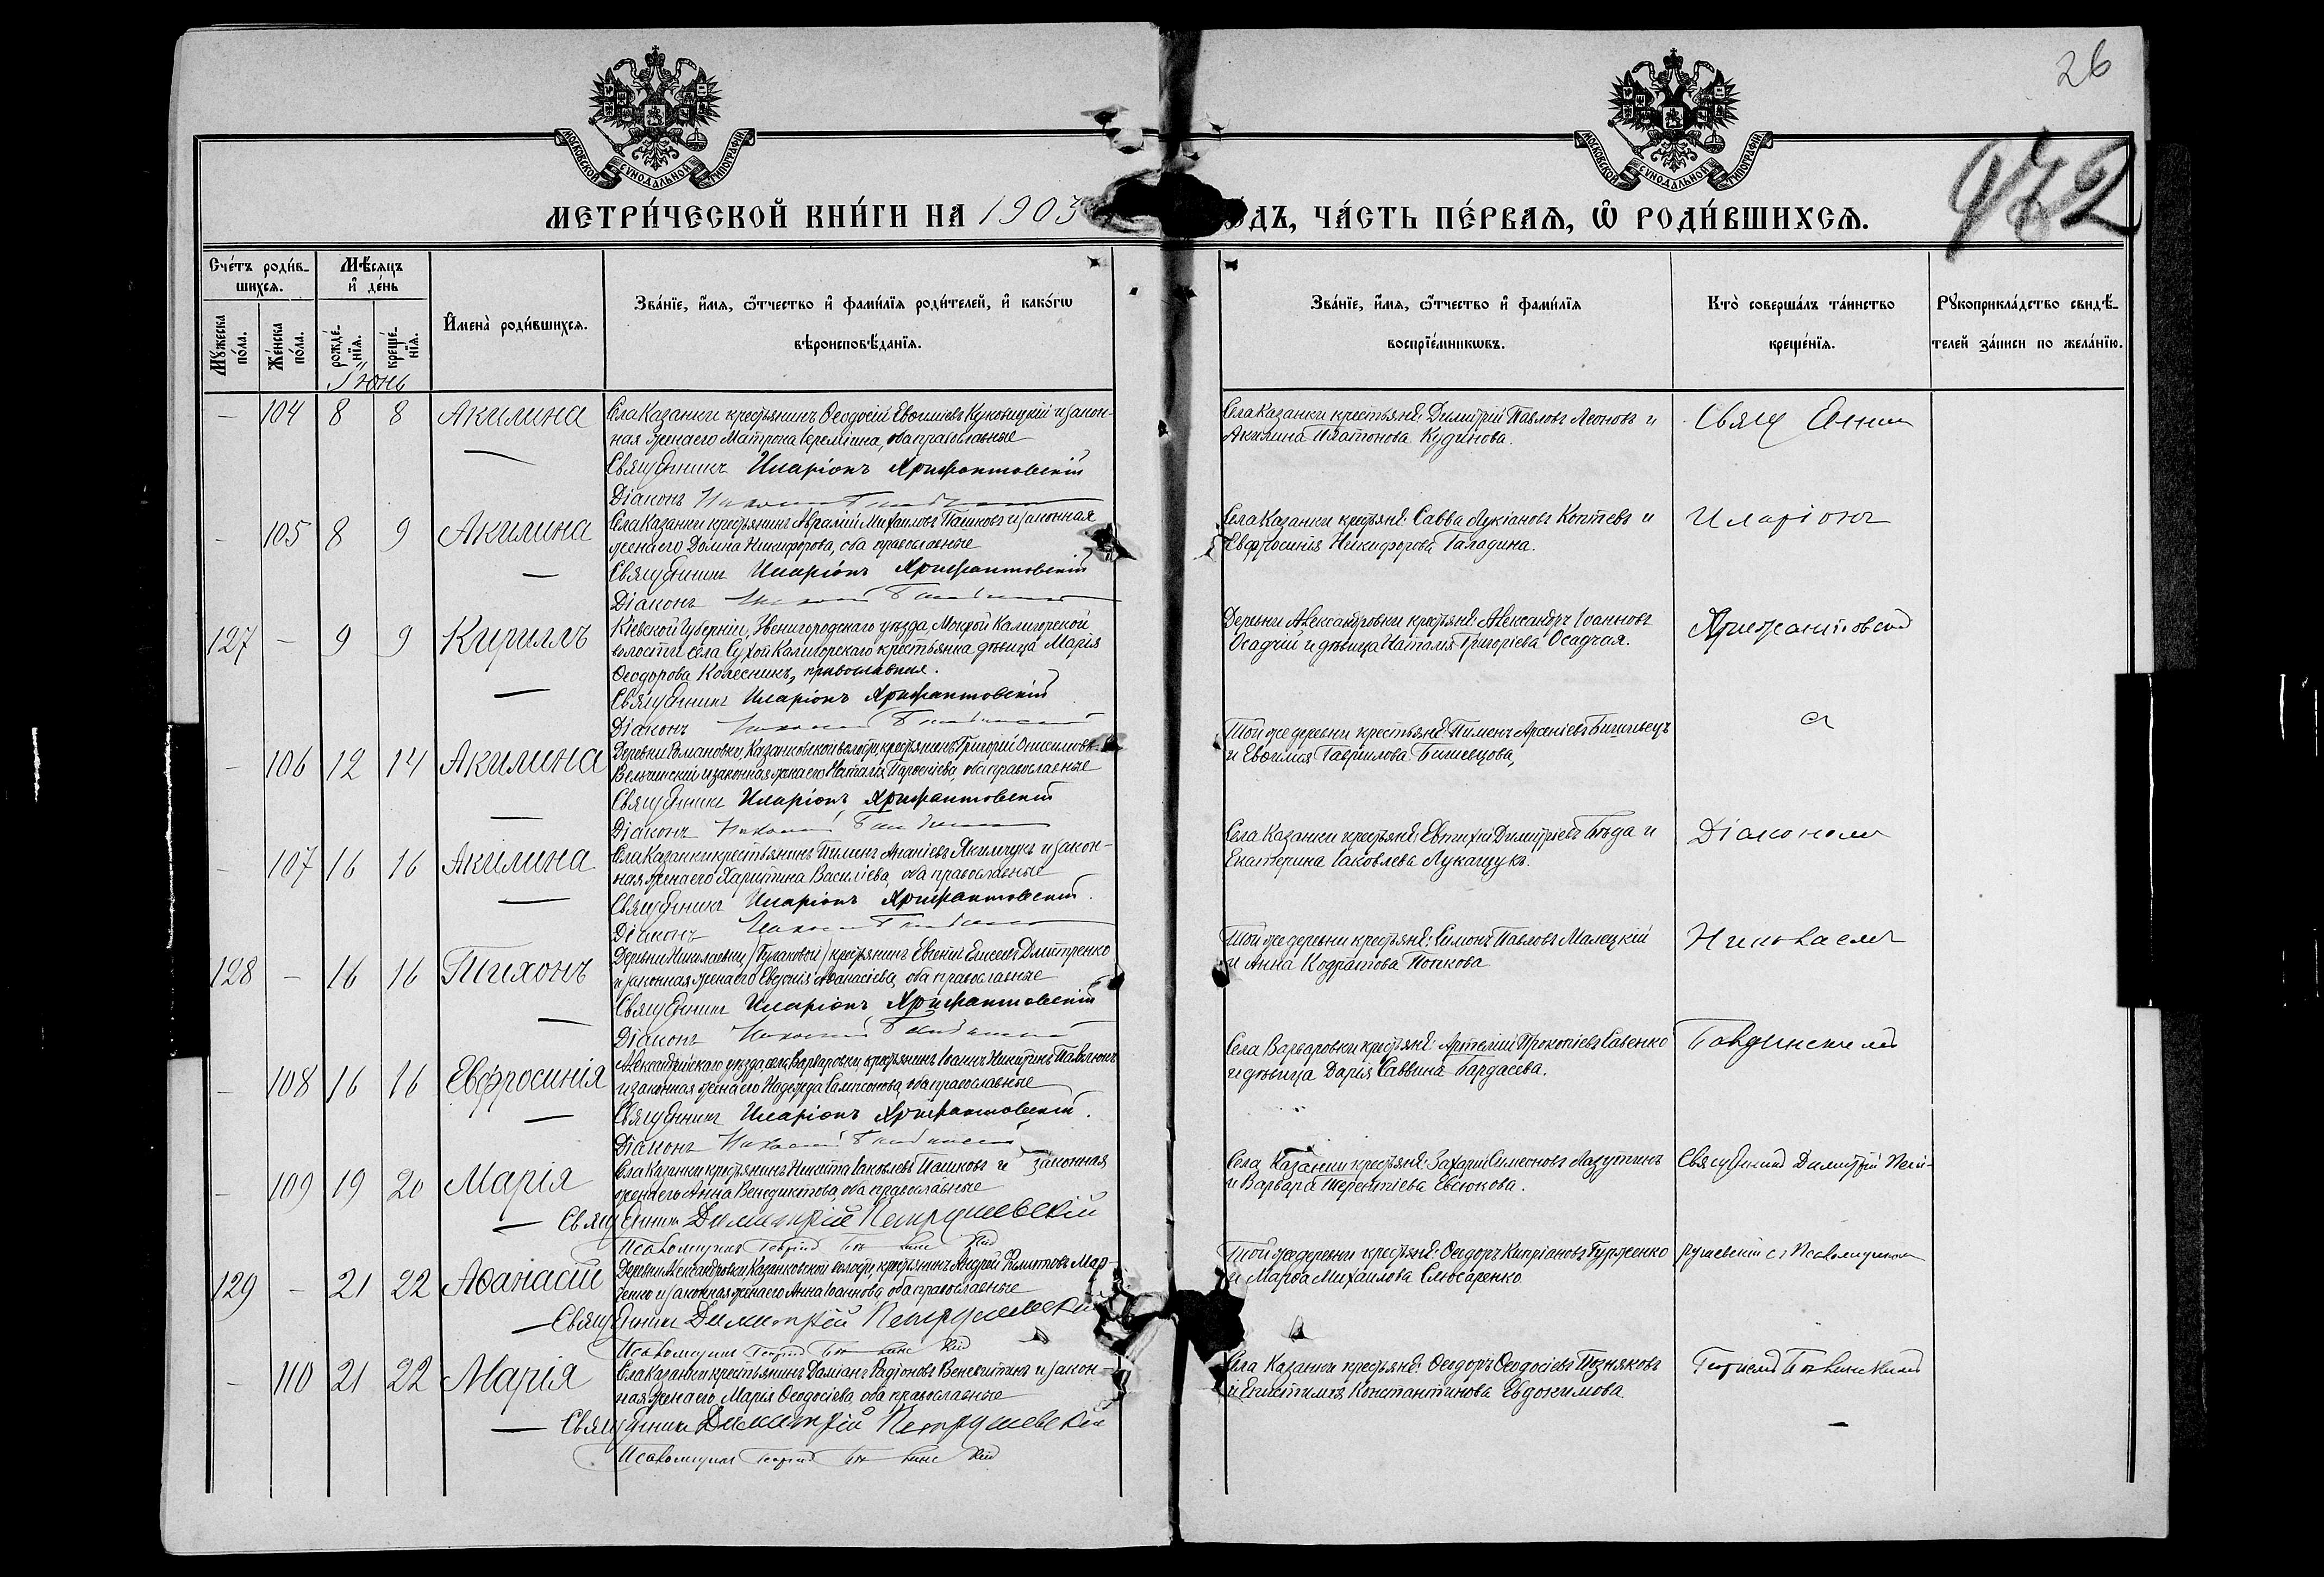 26
972
МОСКОВСКОЙ СѴНОДАЛЬНОЙ ТИПОГРАФІИ
МОСКОВСКОЙ СѴНОДАЛЬНОЙ ТИПОГРАФІИ
МЕТРИ́ЧЕСКОЙ КНИ́ГИ НА 1903
ОДЪ, ЧА́СТЬ ПЕ́РВАѦ, Ѡ РОДИ́ВШИХСѦ.
Сче́тъ роди́в-
шихсѧ.
Мꙋ́жеска по́ла.
Же́нска по́ла.
Мѣ́сяцъ
и҆ де́нь
рожде́-
нїѧ.
креще́-
нїѧ.
Іюнь
И҆мена̀ роди́вшихсѧ.
Зва́нїе, и҆́мѧ, ѻ҆́тчество и҆ фами́лїѧ роди́телей, и҆ како́гѡ
вѣроисповѣ́данїѧ.
Зва́нїе, и҆́мѧ, ѻ҆́тчество и҆ фами́лїѧ
воспрїе́мникѡвъ.
Кто̀ соверша́лъ та́инство
креще́нїѧ.
Рꙋкоприкла́дство свидѣ́-
телей за́писи по жела́нїю.
— 104 8 8 Акилина
Села Казанки крестьянинъ Ѳеодосій Евѳиміевъ Куковицкій и закон-
ная жена его Матрона Іереміина, оба православные
Священникъ Иларіонъ Хрисантовскій
Діаконъ
Села Казанки крестьяне: Димитрій Павловъ Леоновъ и
Акилина Платонова Кудинова.
Свящ
- 105 8 9 Акилина
Села Казанки крестьянинъ Михаиловъ Пашковъ и законная
жена его Домна Никифорова, оба православные
Священникъ Иларіонъ Хрисантовскій
Діаконъ
Села Казанки крестьяне: Савва Лукіановъ Коптевъ и
Евфросинія Никифорова Галадина.
Иларіонъ
127 — 9 9 Кириллъ
Кіевской Губерніи, Звенигородскаго уѣзда, Мокрой Калигорской
волости села Сухой Калигорскаго крестьянка дѣвица Марія
Ѳеодорова Колесникъ, православная.
Священникъ Иларіонъ Хрисантовскій
Діаконъ
Деревни Александровки крестьяне: Александръ Іоанновъ
Осадчій и дѣвица Наталія Григоріева Осадчая.
Хрисантовскій
- 106 12 14 Акилина
Деревни Романовки, Казанковской волости, крестьянинъ Григорій Онисимовъ
и законная жена его Наталія Парѳеніева, оба православные
Священникъ Иларіонъ Хрисантовскій
Діаконъ
Той же деревни крестьяне: Пименъ Арсеніевъ
и Евѳимія Гавриилова
съ
- 107 16 16 Акилина
Села Казанки крестьянинъ Пименъ Ананіевъ Якимчукъ и закон-
ная жена его Харитина Василіева, оба православные
Священникъ Иларіонъ Хрисантовскій.
Діаконъ
Села Казанки крестьяне: Евтихій Димитріевъ Бѣда и
Екатерина Іаковлева Лукащукъ.
Діакономъ
128 — 16 16 Тихонъ
Деревни Николаевки крестьянинъ Евсевій Елисеевъ Дмитренко
и законная жена его Евдокія Аѳанасіева, оба православные
Священникъ Иларіонъ Хрисантовскій
Діаконъ
Той же деревни крестьяне: Симонъ Павловъ Малецкій
и Анна Кодратова Попкова
Николаемъ
- 108 16 16 Евфросинія
Александрійскаго уѣзда, села Варваровки, крестьянинъ Іоаннъ Никитинъ Павлюкъ
и законная жена его Надежда Сампсонова, оба православные
Священникъ Иларіонъ Хрисантовскій.
Діаконъ
Села Варваровки крестьяне: Артемій Прокопіевъ Савенко
и дѣвица Дарія Саввина Бардасева.
- 109 19 20 Марія
Села Казанки крестьянинъ Никита Іаковлевъ Пашковъ и законная
жена его Анна Венедиктова, оба православные
— Священникъ Димитрій Петрушевскій
Псаломщикъ Георгій
Села Казанки крестьяне: Захарій Симеоновъ Лазутинъ
и Варвара Терентіева Евсюкова.
Священникъ Димитрій Пет-
129 — 21 22 Аѳанасій
Деревни Александровки, Казанковской волости, крестьянинъ Андрей Филипповъ Мар-
ченко и законная жена его Анна Іоаннова, оба православные
— Священникъ Димитрій Петрушевскій
Псаломщикъ Георгій
Той же деревни крестьяне: Ѳеодоръ Кипріановъ Гурженко
и Марѳа Михаилова Слюсаренко
рушевскій съ Псаломщикомъ
- 110 21 22 Марія
Села Казанки крестьянинъ Даміанъ Родіоновъ и закон-
ная жена его Марія Ѳеодосіева, оба православные
— Священникъ Димитрій Петрушевскій
Псаломщикъ Георгій
Села Казанки крестьяне: Ѳеодоръ Ѳеодосіевъ Позняковъ
и Епистимія Константинова Евдокимова
Георгіемъ